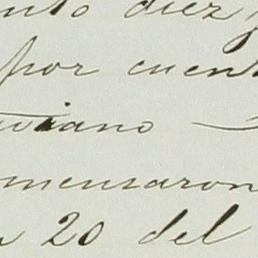 diez
por cuent
viano
mensaron
20 del